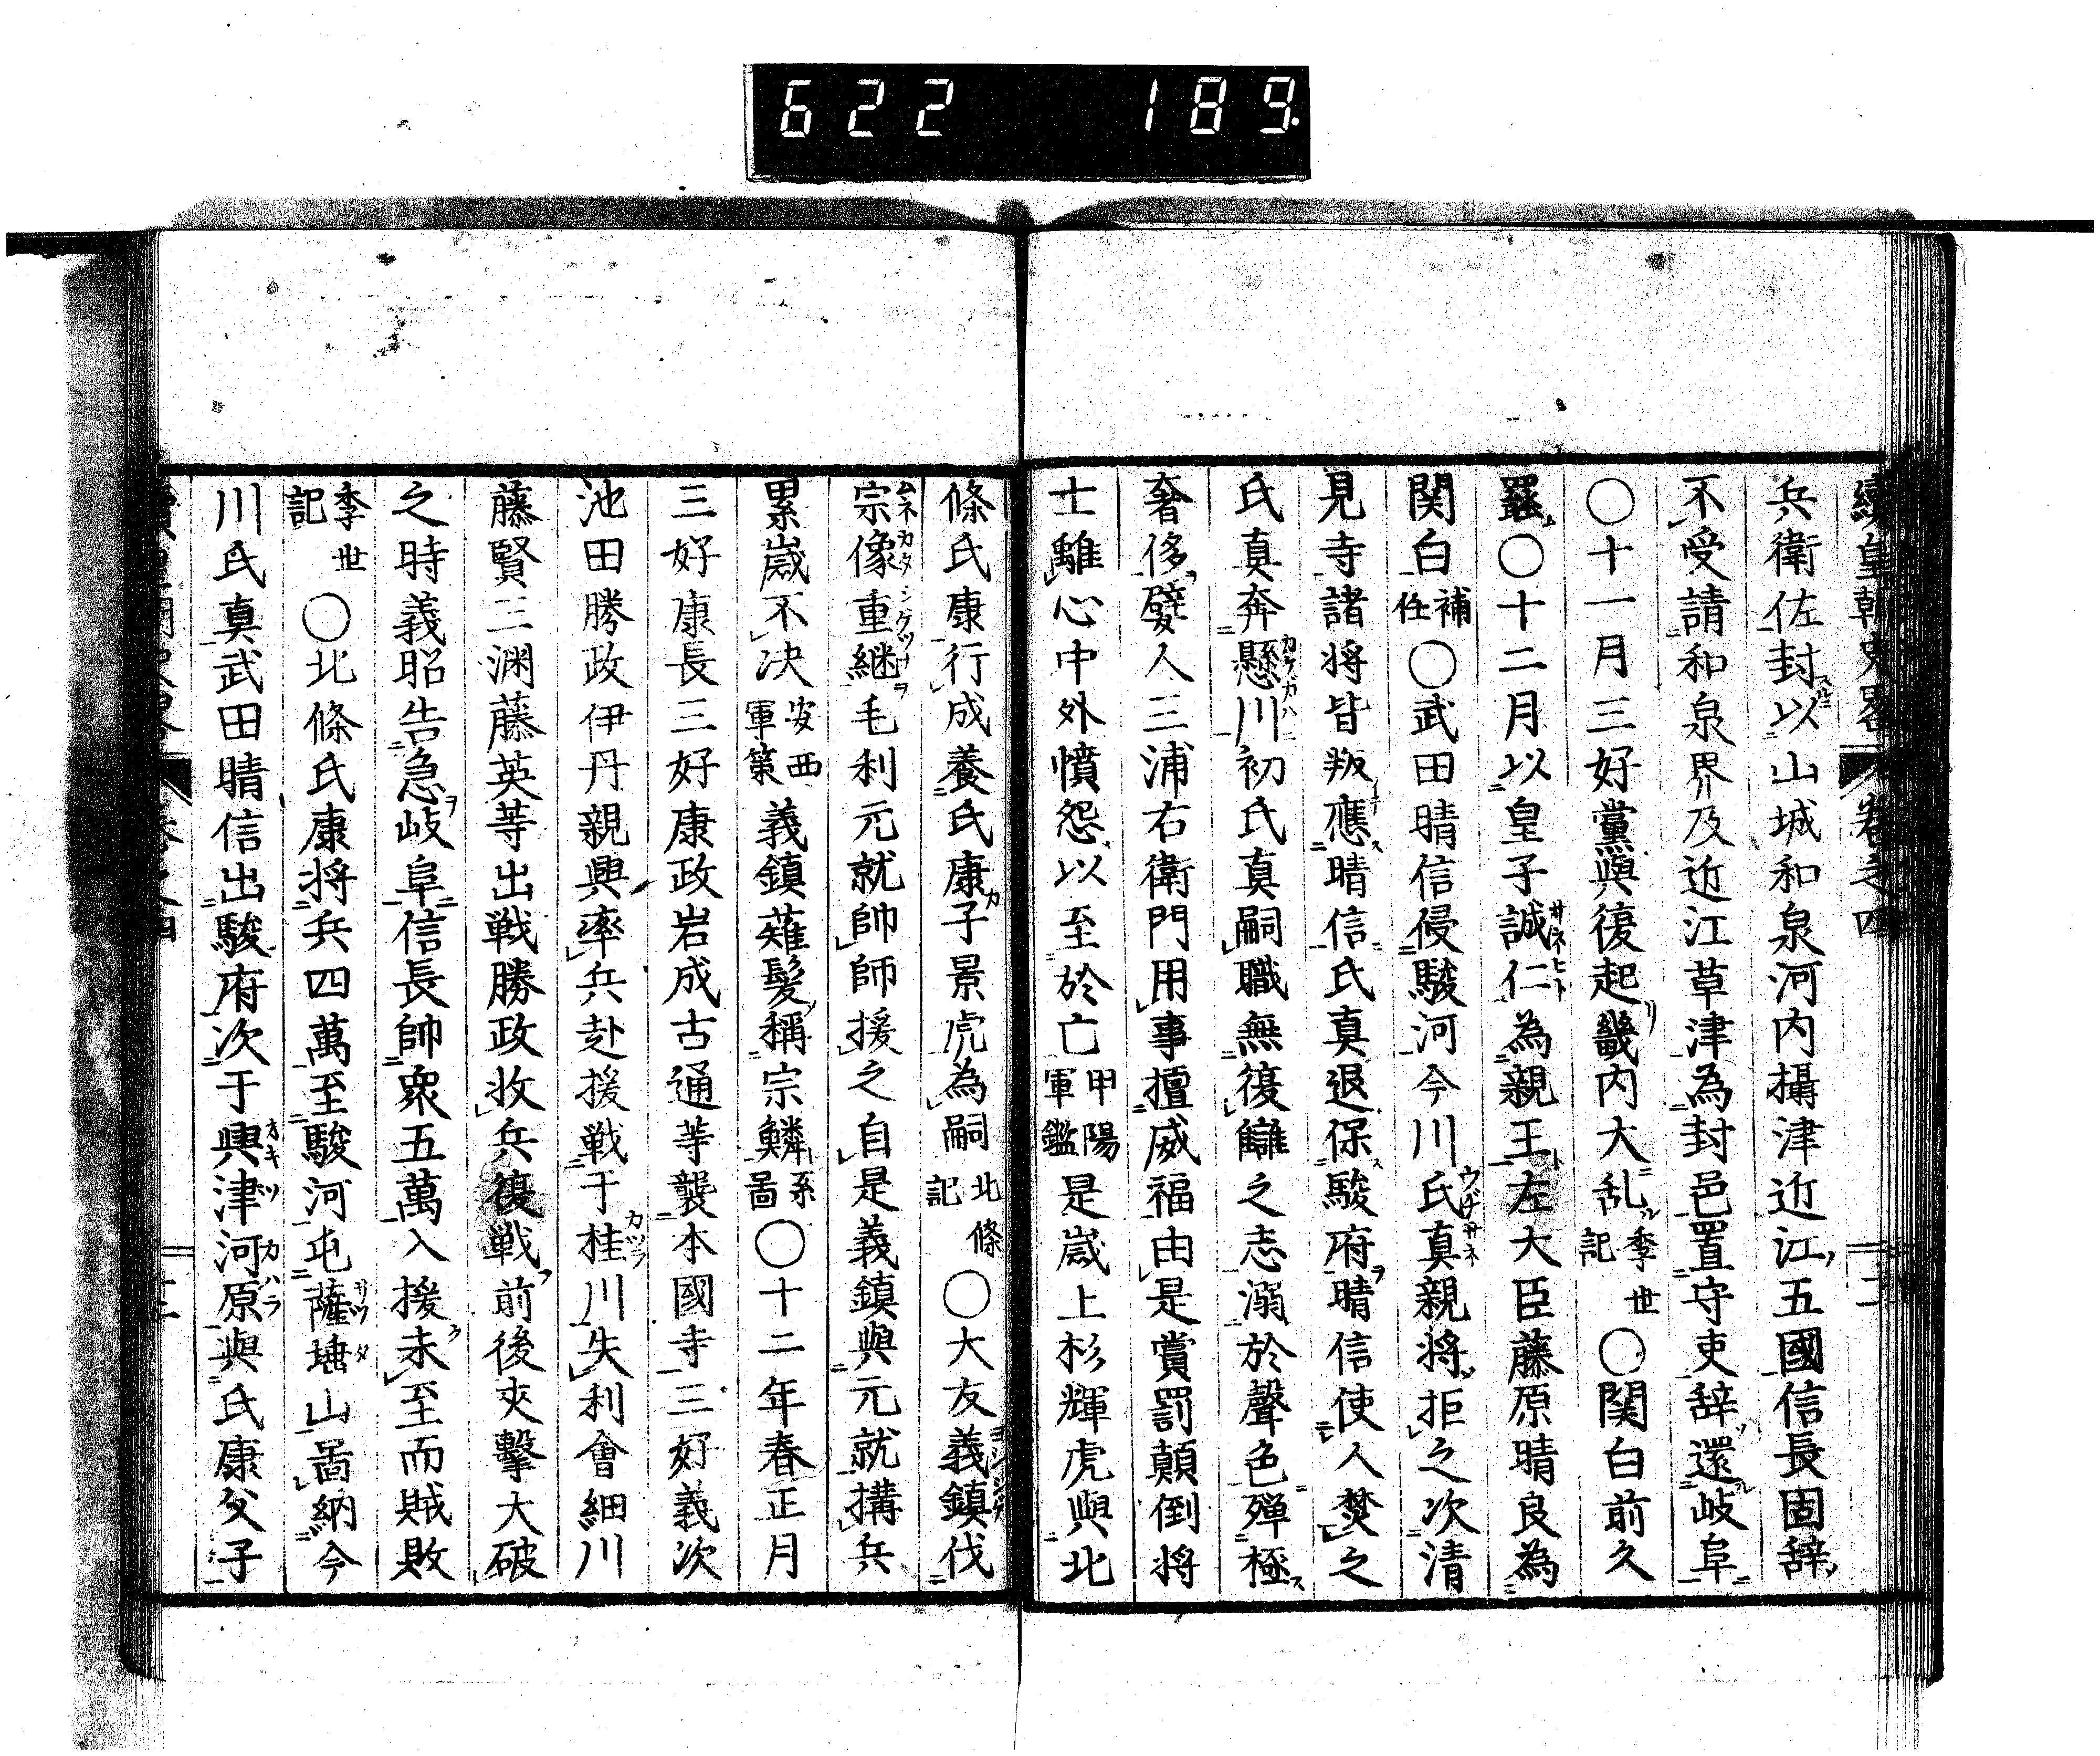 622 189.
續皇朝史畧 卷之四 二
兵衛佐封以山城和泉河内攝津近江五國信長固辞
不受請和泉界及近江草津為封邑置守吏辞還岐阜
○十一月三好黨與復起畿内大乱季世記○関白前久
罷○十二月以皇子誠仁為親王左大臣藤原晴良為
関白補任○武田晴信侵駿河今川氏真親將拒之次清
見寺諸将皆叛應晴信氏真退保駿府晴信使人焚之
氏真奔懸川初氏真嗣職無復讎之志溺於聲色殫極
奢侈嬖人三浦右衛門用事擅威福由是賞罰顛倒将
士離心中外憤怨以至於亡甲陽軍鑑是歳上杉輝虎與北
條氏康行成養氏康子景虎為嗣北條記○大友義鎮伐
宗像重継毛利元就帥師援之自是義鎮與元就搆兵
累歳不决安西軍策義鎮薙髪稱宗鱗系啚○十二年春正月
三好康長三好康政岩成古通等襲本國寺三好義次
池田勝政伊丹親興率兵赴援戦于桂川失利會細川
藤賢三渊藤英等出戦勝政收兵復戦前後夾擊大破
之時義昭告急岐阜信長帥衆五萬入援未至而賊敗
季世記○北條氏康将兵四萬至駿河屯薩埵山啚納今
川氏真武田晴信出駿府次于興津河原與氏康父子